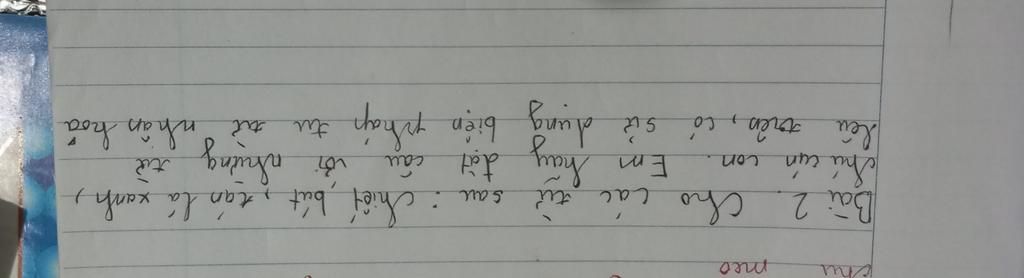 chú mèo
Bài 2. Cho các từ sau: chiếc bút, tán lá xanh,
chú cún con. Em hãy đặt câu với những từ
lêu trên, có sử dụng biện pháp tu từ nhân hoá